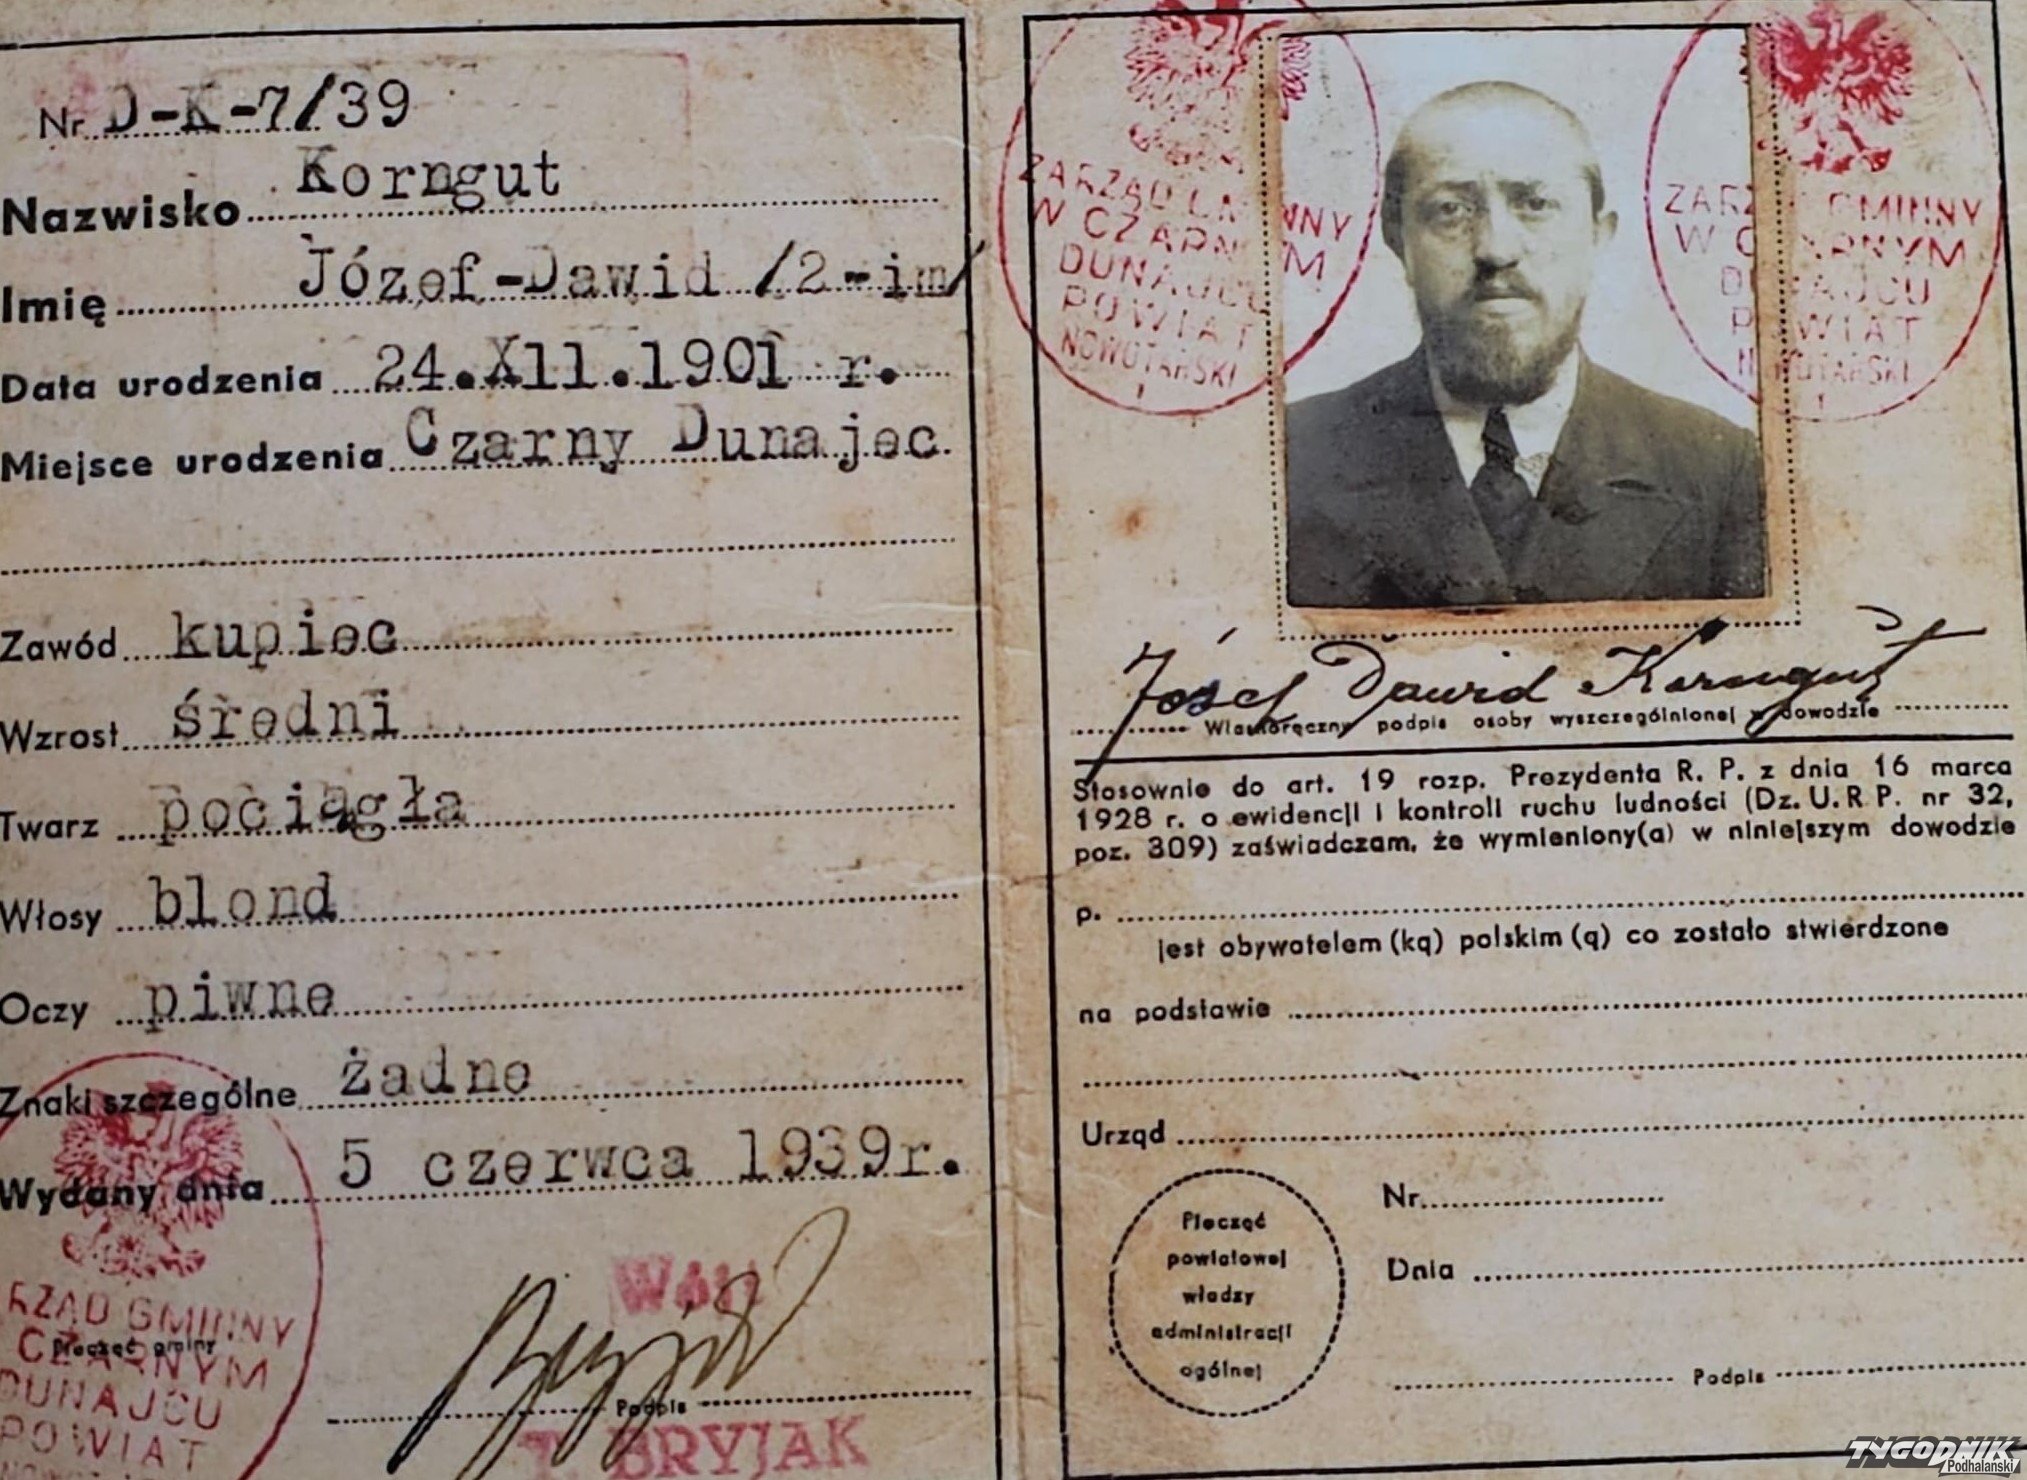 Nr D-K-7/39
Nazwisko Korngut
Imię Józef-Dawid /2-im/
Data urodzenia 24.XII.1901 r.
Miejsce urodzenia Czarny Dunajec.
Zawód kupiec
Wzrost średni
Twarz pociągła
Włosy blond
Oczy piwne
Znaki szczególne żadne
Wydany dnia 5 czerwca 1939r.
Wójt
Pieczęć gminy
RZĄD GMINNY
CZARNYM
DUNAJCU
POWIAT
Podpis
BRYJAK
ZARZĄD GMINNY
W CZARNYM
DUNAJCU
POWIAT
NOWOTARSKI
1
ZARZĄD GMINNY
W CZARNYM
DUNAJCU
POWIAT
NOWOTARSKI
1
Józef Dawid Korngut
Własnoręczny podpis osoby wyszczególnionej w dowodzie
Stosownie do art. 19 rozp. Prezydenta R. P. z dnia 16 marca
1928 r. o ewidencji i kontroli ruchu ludności (Dz. U. R P. nr 32,
poz. 309) zaświadczam, że wymieniony(a) w niniejszym dowodzie
p.
jest obywatelem (ką) polskim (ą) co zostało stwierdzone
na podstawie
Urząd
Pieczęć
powiatowej
władzy
administracji
ogólnej
Nr.
Dnia
Podpis
TYGODNIK
Podhalański